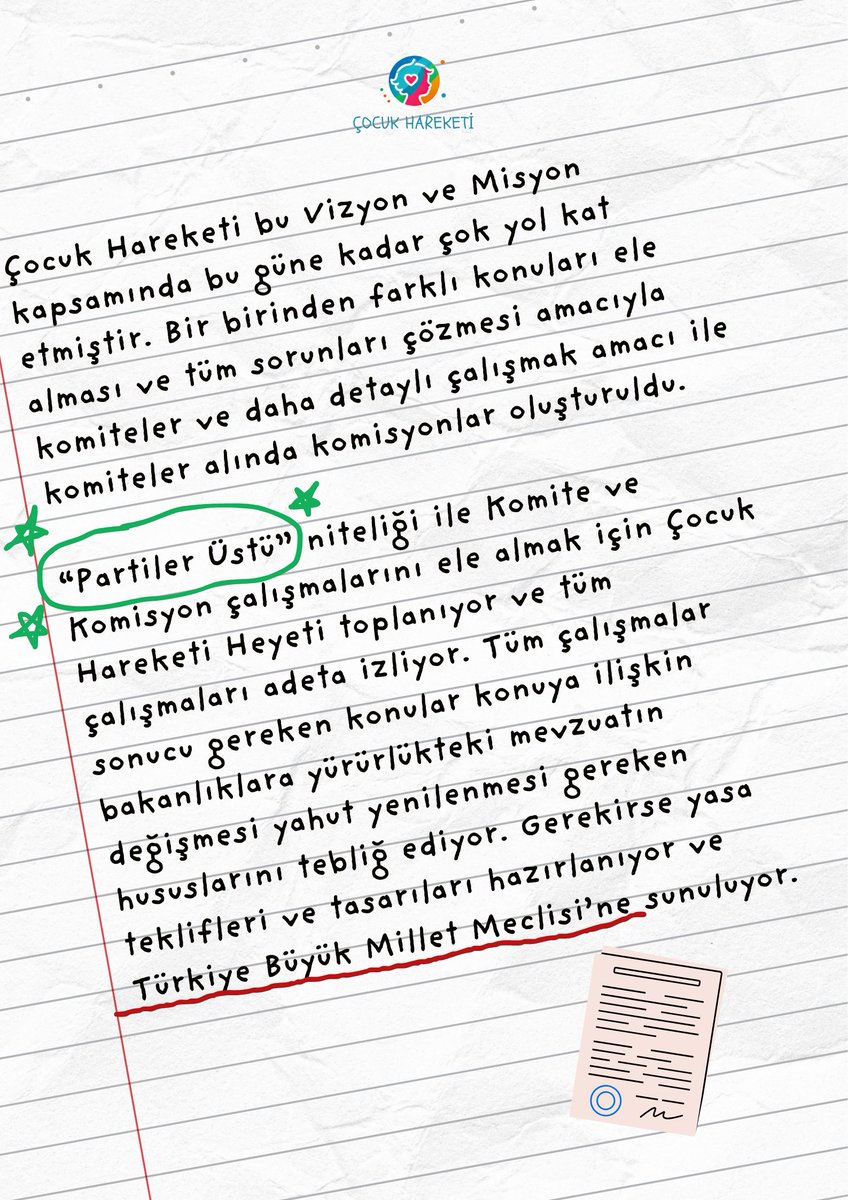 ÇOCUK HAREKETİ
Çocuk Hareketi bu Vizyon ve Misyon
kapsamında bu güne kadar çok yol kat
etmiştir. Bir birinden farklı konuları ele
alması ve tüm sorunları çözmesi amacıyla
komiteler ve daha detaylı çalışmak amacı ile
komiteler alında komisyonlar oluşturuldu.
“Partiler Üstü” niteliği ile Komite ve
Komisyon çalışmalarını ele almak için Çocuk
Hareketi Heyeti toplanıyor ve tüm
çalışmaları adeta izliyor. Tüm çalışmalar
sonucu gereken konular konuya ilişkin
bakanlıklara yürürlükteki mevzuatın
değişmesi yahut yenilenmesi gereken
hususlarını tebliğ ediyor. Gerekirse yasa
teklifleri ve tasarıları hazırlanıyor ve
Türkiye Büyük Millet Meclisi’ne sunuluyor.